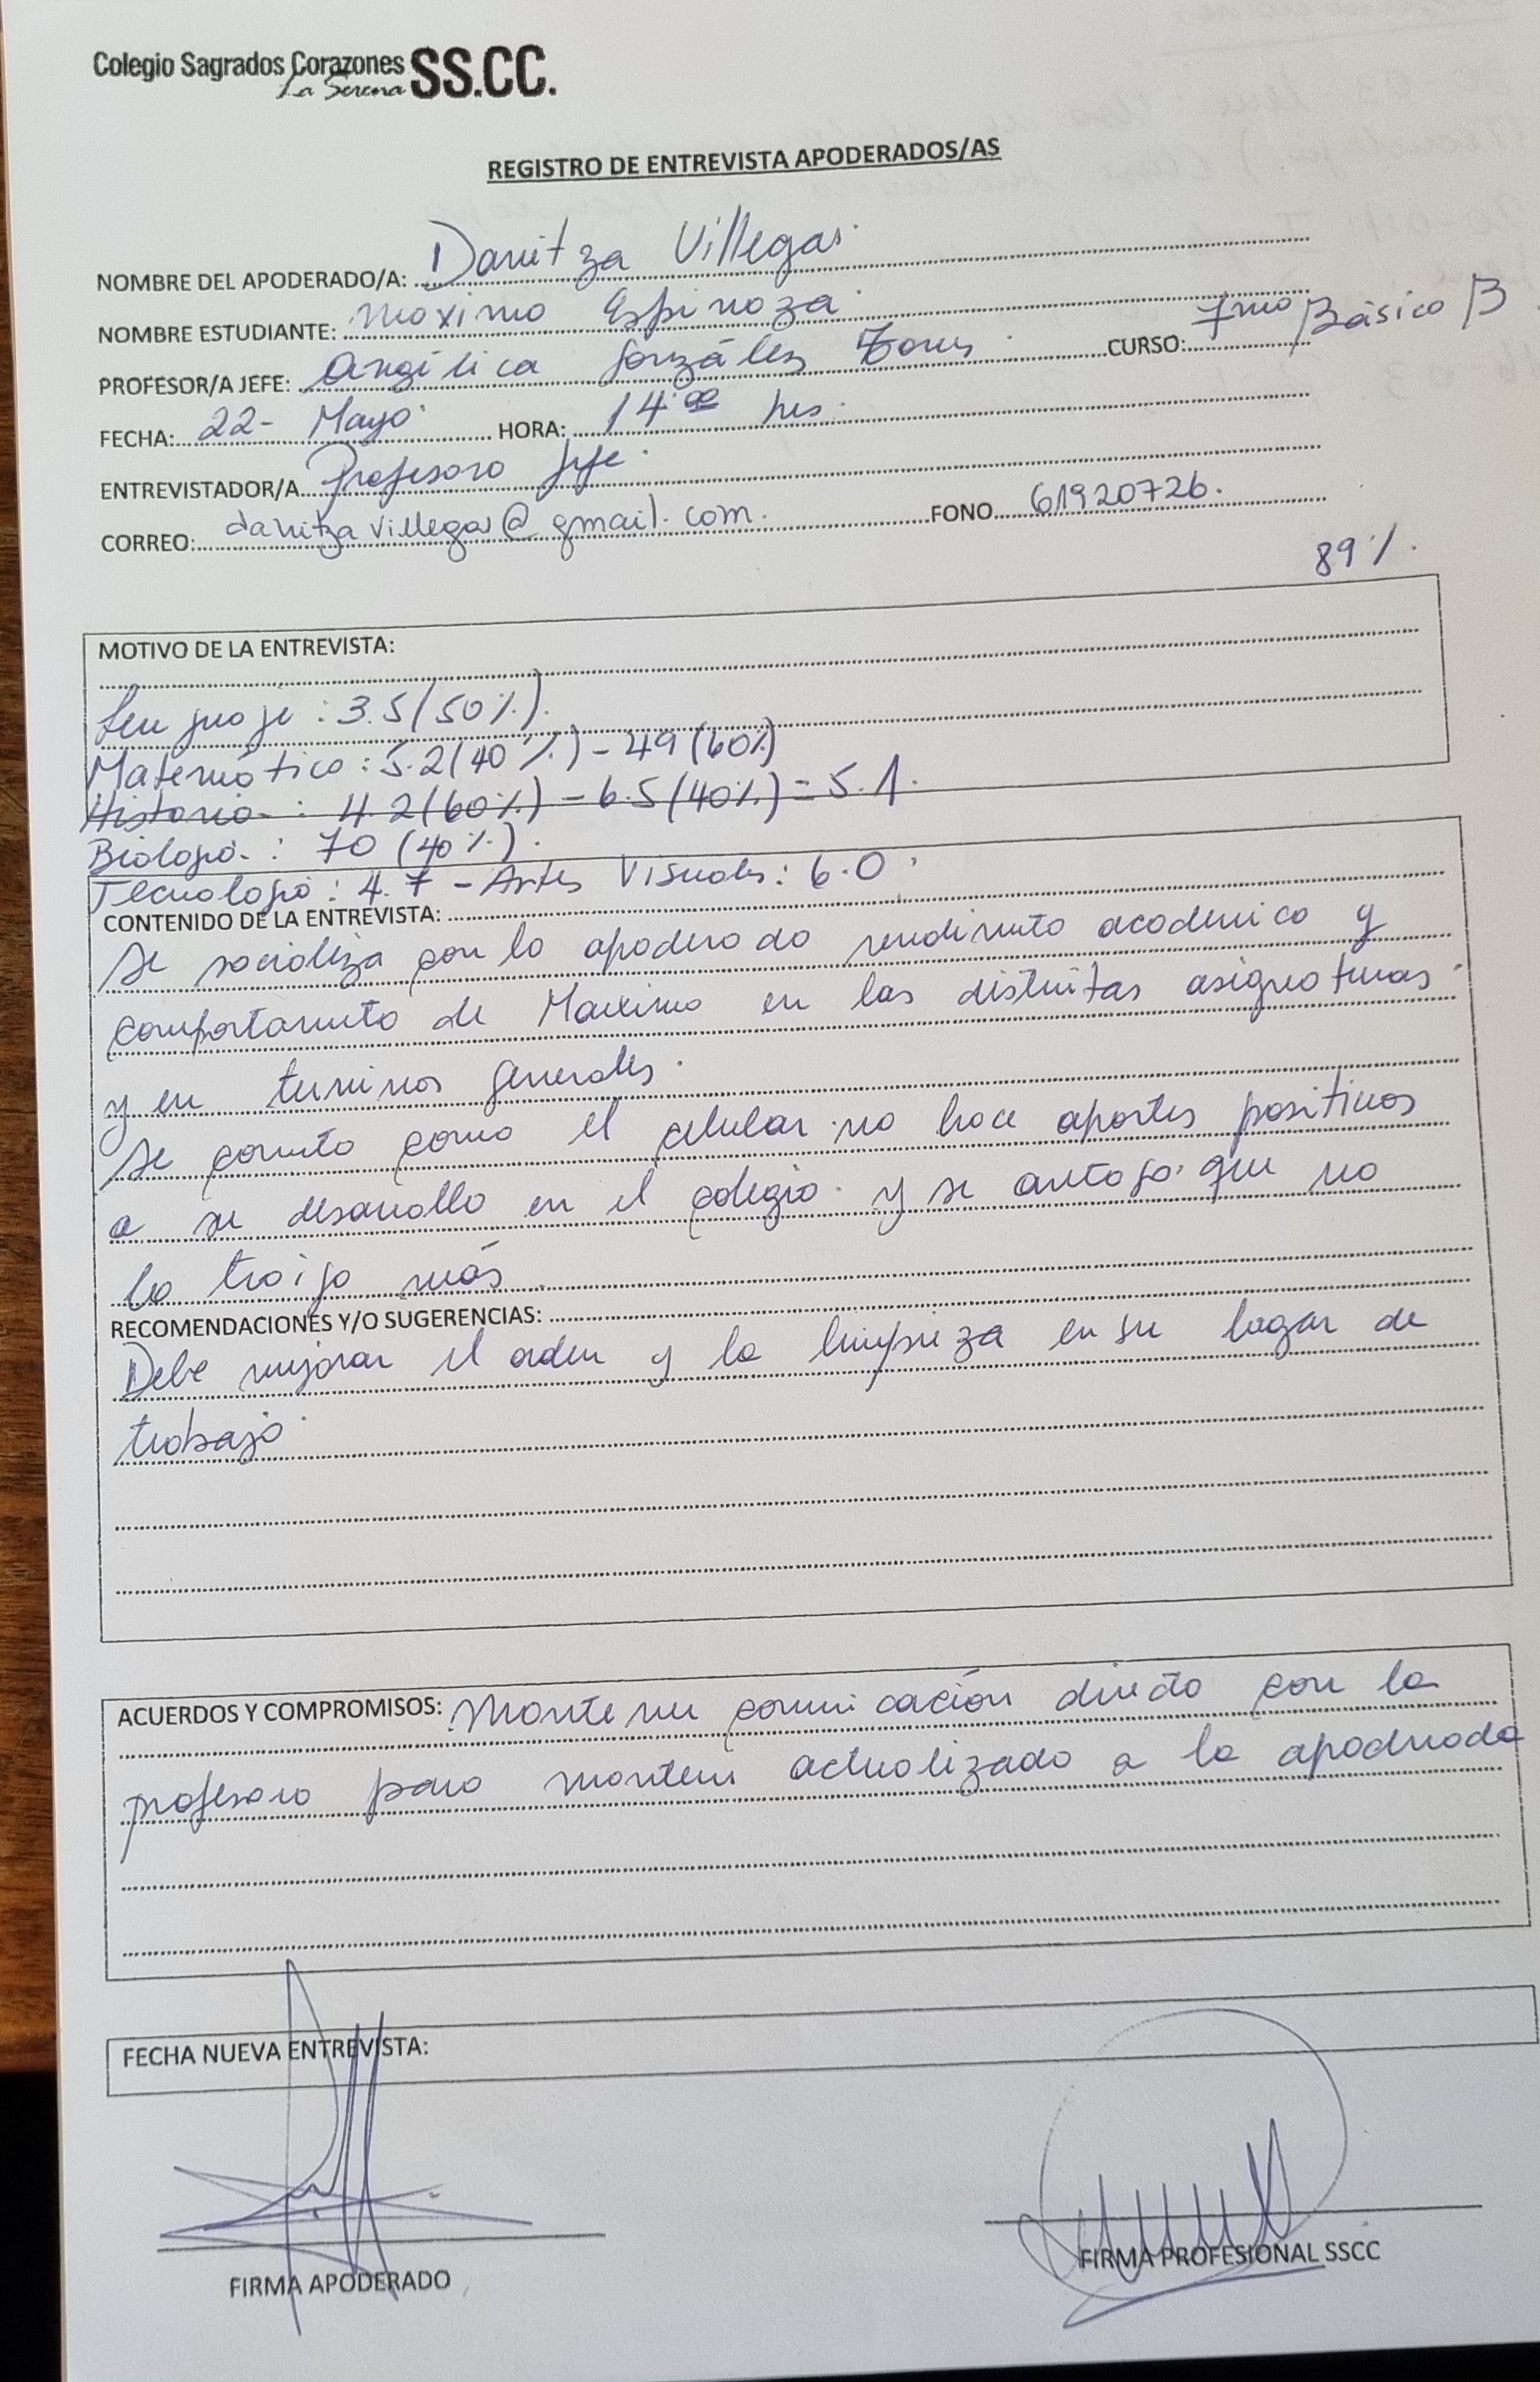 Colegio Sagrados Corazones SS.CC.
La Serena
REGISTRO DE ENTREVISTA APODERADOS/AS
NOMBRE DEL APODERADO/A: Danitza Villegas.
NOMBRE ESTUDIANTE: Maximo Espinoza.
PROFESOR/A JEFE: Angélica González CURSO: 7mo Básico B
FECHA: 22- Mayo. HORA: 14:00 hrs.
ENTREVISTADOR/A Profesora Jefe.
CORREO: danitzavillegas@gmail.com. FONO 61920726.
89%.
MOTIVO DE LA ENTREVISTA:
Lenguaje: 3.5(50%).
Matemática: 5.2(40%) - 49(60%)
Historia: 4.2(60%) - 6.5(40%) = 5.1.
Biología: 70 (40%).
Tecnología: 4.7 - Artes Visuales: 6.0.
CONTENIDO DE LA ENTREVISTA:
Se socializa con la apoderada rendimiento academico y
comportamiento de Maximo en las distintas asignaturas.
y en terminos generales.
Se comenta como el celular no hace aportes positivos
a su desarrollo en el colegio. y se que no
lo traiga más.
RECOMENDACIONES Y/O SUGERENCIAS:
Debe mejorar el orden y la limpieza en su lugar de
trabajo.
ACUERDOS Y COMPROMISOS: Mantener comunicación directa con la
profesora para mantener actualizado a la apoderada
FECHA NUEVA ENTREVISTA:
FIRMA APODERADO FIRMA PROFESIONAL SSCC